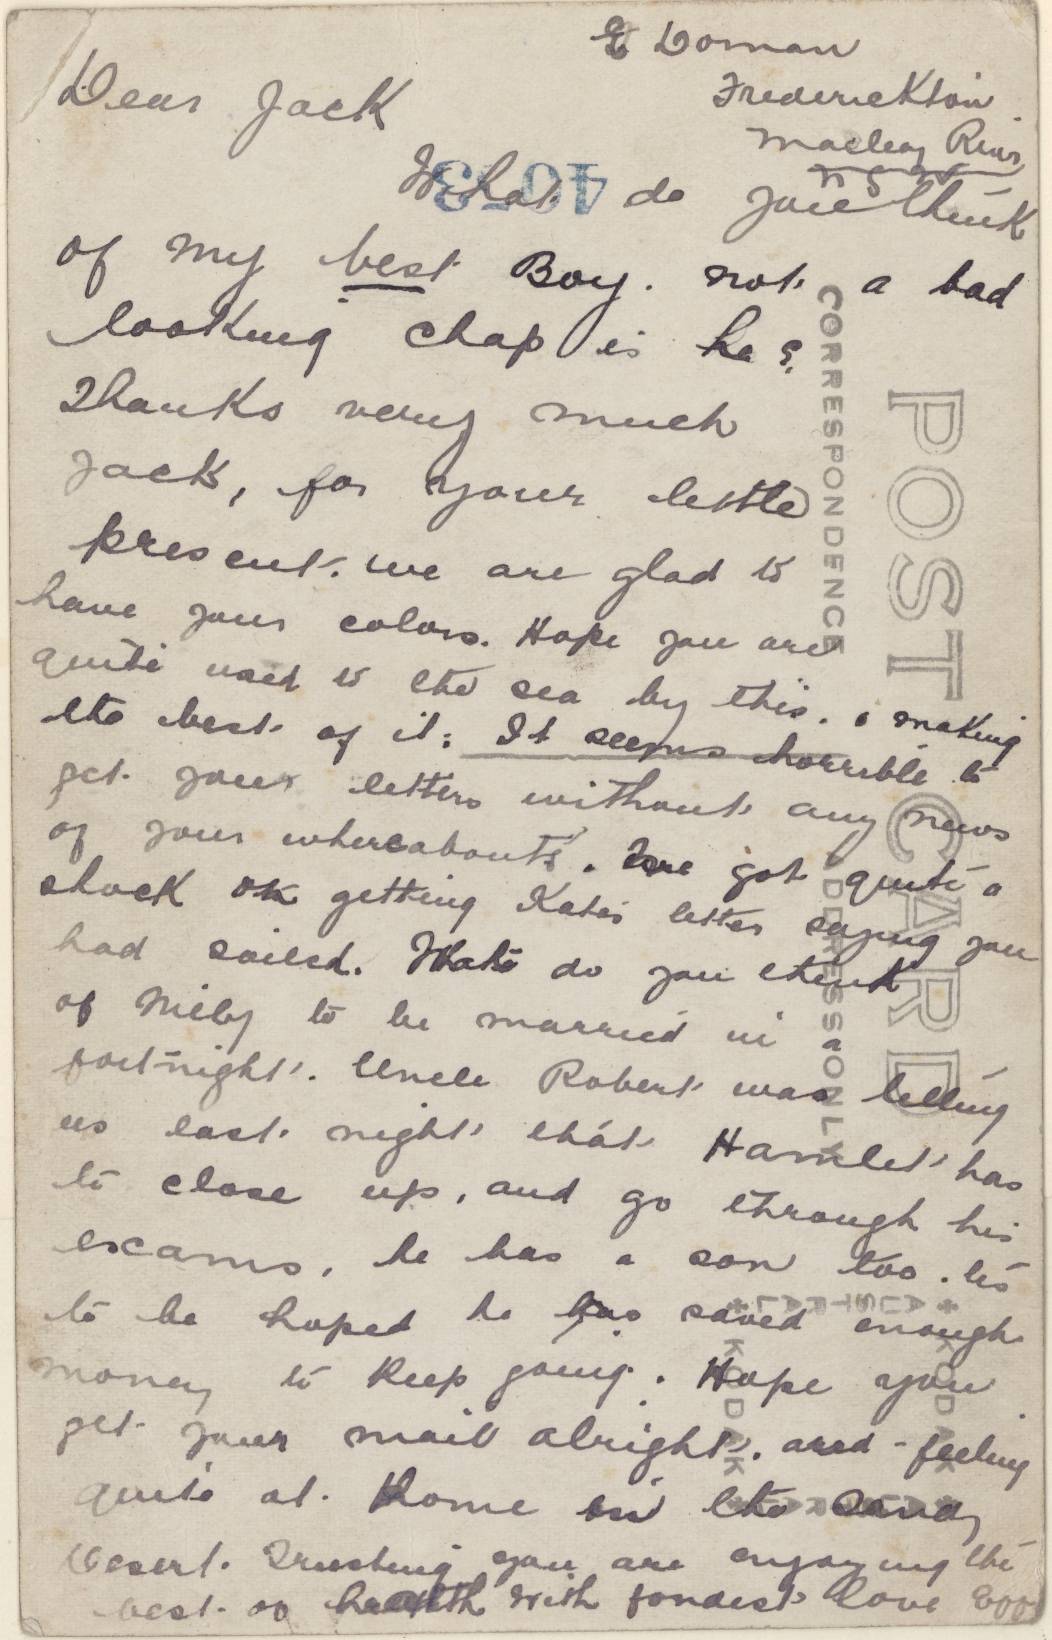 E Doman
Frederickton
Macleay River
N S W
Dear Jack
40 53
What do you think
of my best Boy. not a bad
looking chap is he?
Thanks very much
Jack, for your little
present. we are glad to
have your colors. Hope you are
quite used to the sea by this. & making
the best of it: It seems horrible to
get your letters without any news
of your whereabouts. We got quite a
shock on getting Kate's letter saying you
had sailed. What do you think
of Milby to be married in a
fortnight. Uncle Robert was telling
us last night that Hamlet has
to close up, and go through his
exams, he has a son too. its
to be hoped he has saved enough
money to keep going. Hope you
get your mail alright. and feeling
quite at home in the sandy
Desert. Trusting you are enjoying the
best of health with fondest love
POST CARD
CORRESPONDENCE
ADDRESS ONLY
* AUSTRAL *
* KODAK *
* KODAK *
* AUSTRAL *